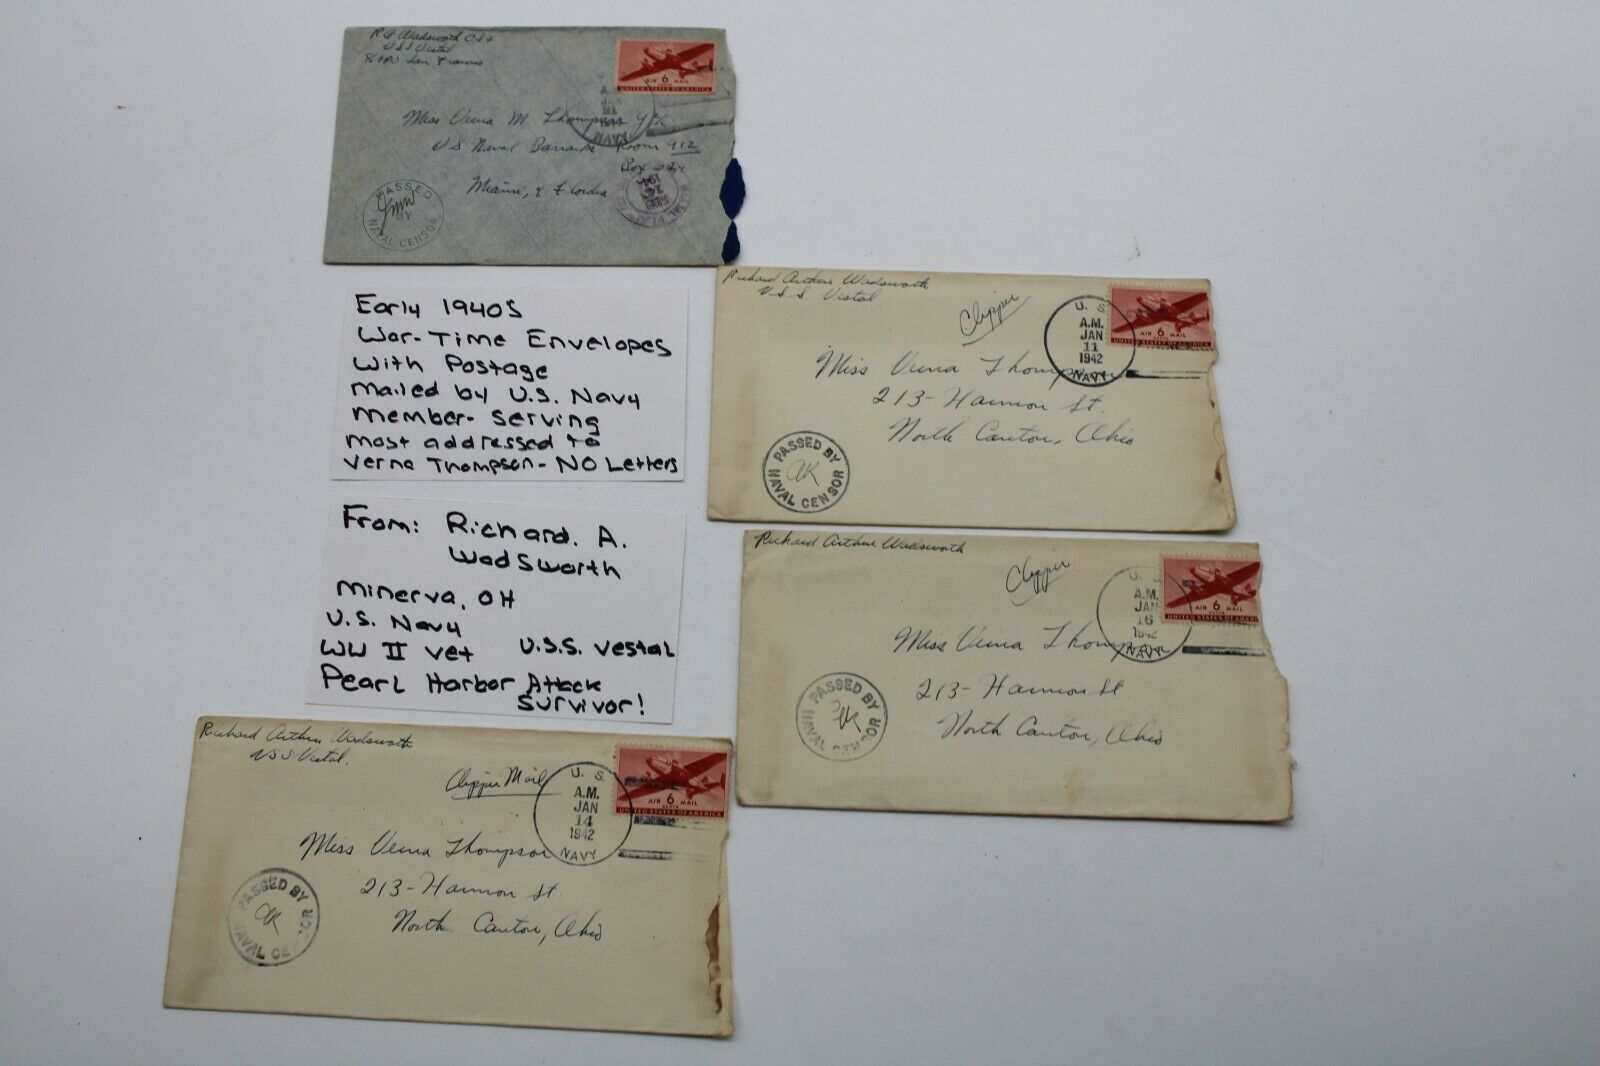 R A Wadsworth CSF
USS Vestal
% FPO San Francisco
AIR 6 MAIL
UNITED STATES OF AMERICA
A.M.
NAVY
Miss Verna M. Thompson
US Naval Barracks Room 912
Miami, Florida
PASSED
BY
NAVAL CENSOR
Early 1940s
War-Time Envelopes
with Postage
mailed by U.S. Navy
member- serving
most addressed to
Verna Thompson- NO Letters
From: Richard. A.
Wadsworth
Minerva, OH
U.S. Navy
WW II vet U.S.S. Vestal
Pearl Harbor Attack
Survivor!
Richard Arthur Wadsworth
USS Vestal
Clipper
U. S.
A.M.
JAN
11
1942
NAVY
AIR 6 MAIL
UNITED STATES OF AMERICA
Miss Verna Thompson
213- Harmon St.
North Canton, Ohio
PASSED BY
NAVAL CENSOR
Richard Arthur Wadsworth
Clipper
U. S.
A.M.
JAN
16
1942
NAVY
AIR 6 MAIL
CENTS
UNITED STATES OF AMERI
Miss Verna Thompson
213- Harmon St.
North Canton, Ohio
PASSED BY
NAVAL CENSOR
Richard Arthur Wadsworth
USS Vestal.
Clipper Mail
U. S.
A.M.
JAN
14
1942
NAVY
AIR 6 MAIL
CENTS
UNITED STATES OF AMERICA
Miss Verna Thompson
213- Harmon St.
North Canton, Ohio
PASSED BY
NAVAL CENSOR